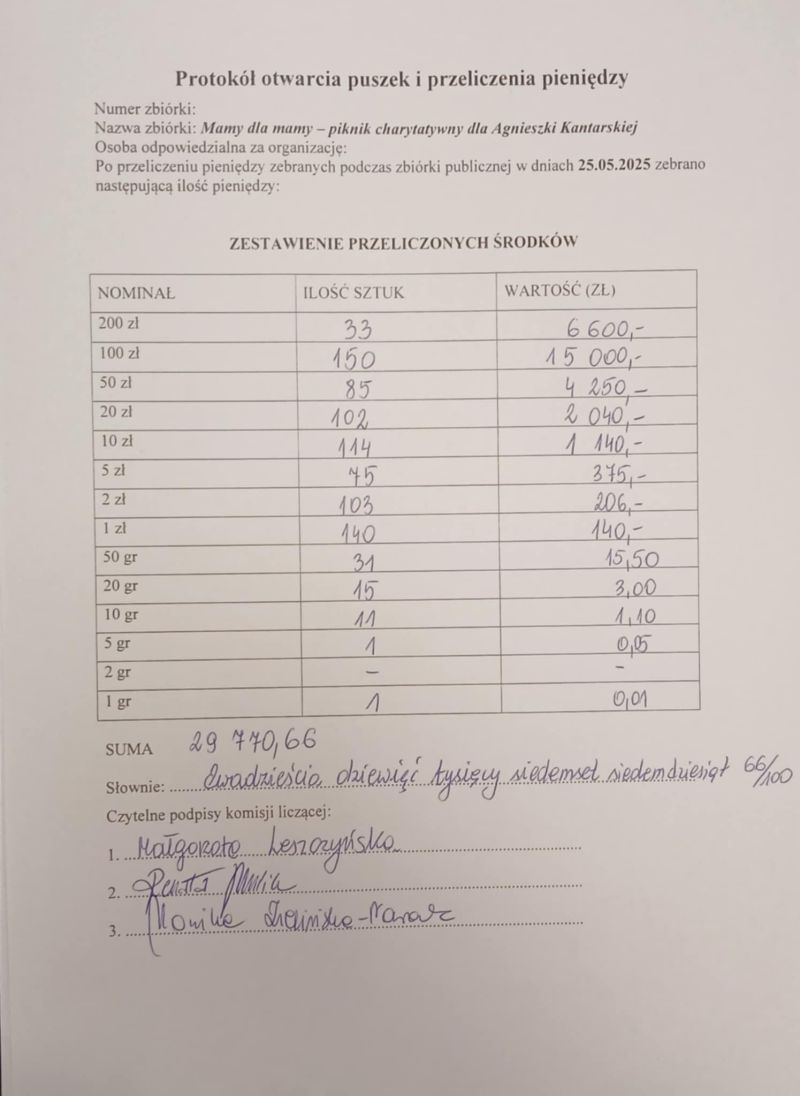 Protokół otwarcia puszek i przeliczenia pieniędzy
Numer zbiórki:
Nazwa zbiórki: Mamy dla mamy – piknik charytatywny dla Agnieszki Kantarskiej
Osoba odpowiedzialna za organizację:
Po przeliczeniu pieniędzy zebranych podczas zbiórki publicznej w dniach 25.05.2025 zebrano
następującą ilość pieniędzy:
ZESTAWIENIE PRZELICZONYCH ŚRODKÓW
NOMINAŁ ILOŚĆ SZTUK WARTOŚĆ (ZŁ)
200 zł 33 6 600,-
100 zł 150 15 000,-
50 zł 85 4 250,-
20 zł 102 2 040,-
10 zł 114 1 140,-
5 zł 75 375,-
2 zł 103 206,-
1 zł 140 140,-
50 gr 31 15,50
20 gr 15 3,00
10 gr 11 1,10
5 gr 1 0,05
2 gr – –
1 gr 1 0,01
SUMA 29 770,66
Słownie: Dwadzieścia dziewięć tysięcy siedemset siedemdziesiąt 66/100
Czytelne podpisy komisji liczącej:
1. Małgorzata Leszczyńska
2. Renata
3. Monika